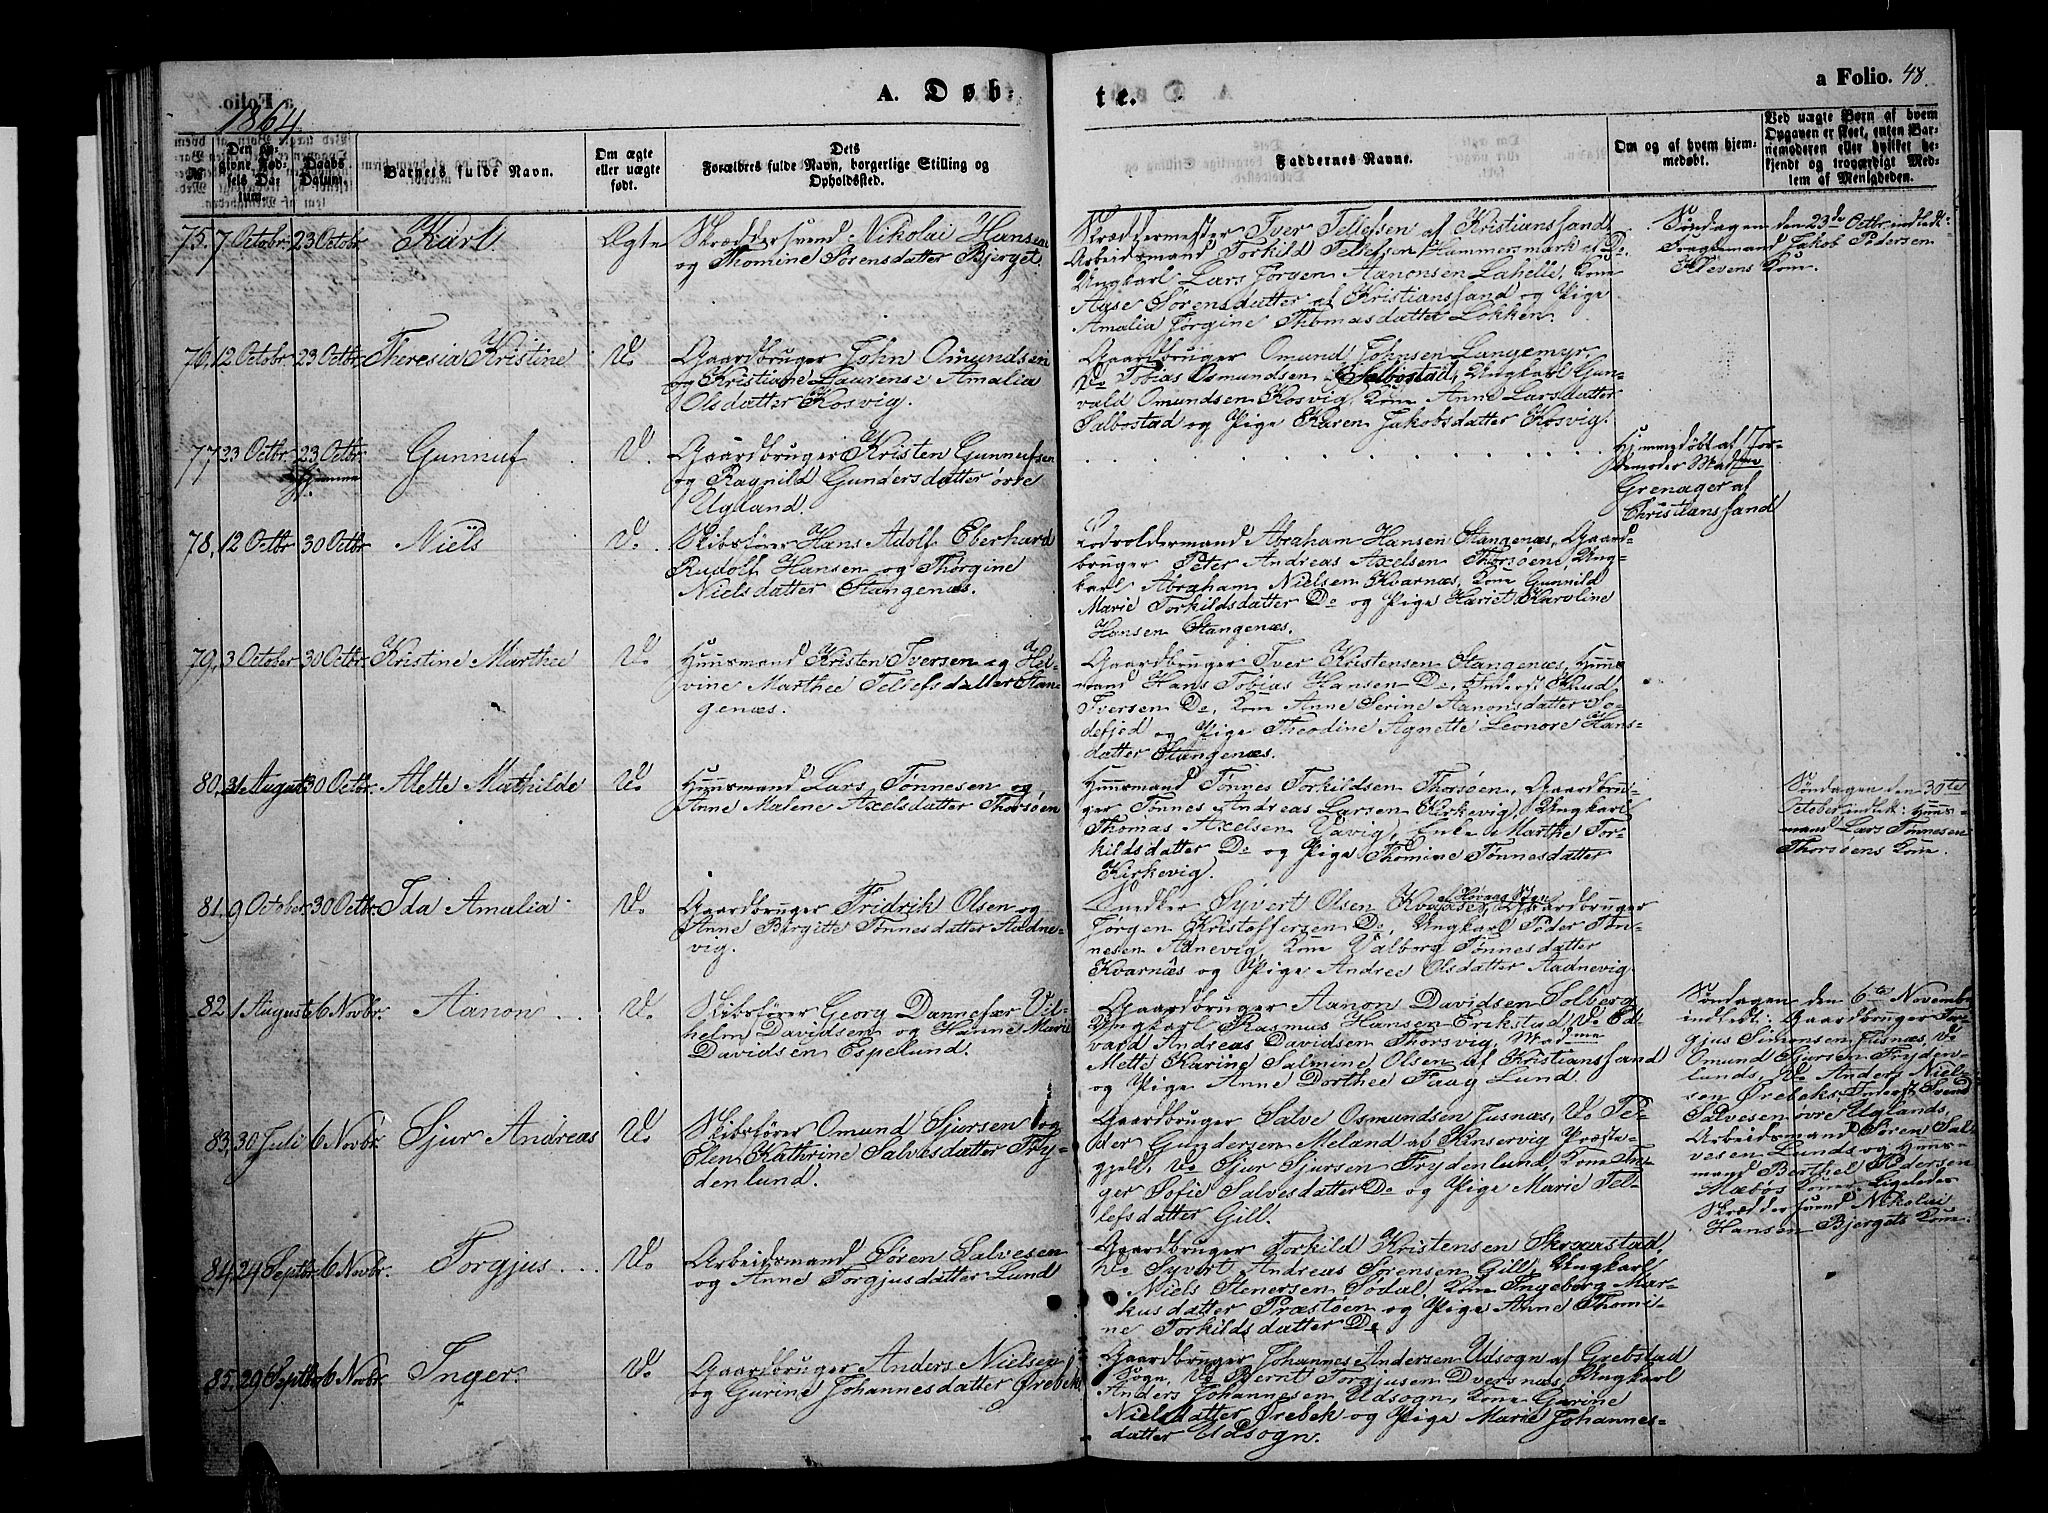 a Folio. 48.
A. Døb-
te.
1864
Den opgivne Fødsels Datum.
Daabs Datum.
Barnets fulde Navn.
Om ægte
eller uægte
født.
Dets
Forældres fulde Navn, borgerlige Stilling og
Opholdssted.
Faddernes Navne.
Om og af hvem hjem-
medøbt.
Ved uægte Børn af hvem
Opgaven er skeet, enten Bar-
nemoderen eller hvilket be-
kjendt og troværdigt Med-
lem af Menigheden.
75. 7 Octobr. 23 Octobr. Karl Ægte
Skræddersvend Nikolai Hansen
og Thomine Sørensdatter Bjerget.
Skræddermester Iver Tellefsen af Kristianssand,
Arbeidsmand Torkild Tellefsen Hammersmark af Do.
Ungkarl Lars Jørgen Aanonsen Lahelle, Kone
Aase Sørensdatter af Kristianssand og Pige
Amalia Jørgine Thomasdatter Løkken.
Søndagen den 23de Octbr. indledt:
Fragtmand Jakob Pedersen
Klevens Kone.
76. 12 Octobr. 23 Octbr. Theresia Kristine D.
Gaardbruger John Omundsen
og Kristiane Laurense Amalia
Olsdatter Kosvig.
Gaardbruger Omund Johnsen Langemyr,
Do Tobias Osmundsen Salbostad, Ungkarl Gun-
vald Omundsen Kosvig, Kone Anne Larsdatter
Salbostad og Pige Karen Jakobsdatter Kosvig.
77. 23 Octbr. 23 Octbr. Hjemme Gunnuf D.
Gaardbruger Kristen Gunnufsen
og Ragnild Gundersdatter øvre
Ugland.
Hjemmedøbt af Jor-
demoder Madme
Grenager af
Christianssand
78. 12 Octbr. 30 Octbr. Niels D.
Skibsfører Hans Adolf Eberhard
Rudolf Hansen og Thorgine
Nielsdatter Stangenæs.
Lodsoldermand Abraham Hansen Stangenæs, Gaard-
bruger Peter Andreas Axelsen Thorsøen, Ung-
karl Abraham Nielsen Kvarnæs, Kone Gunnild
Marie Torkildsdatter Do og Pige Hariet Karoline
Hansen Stangenæs.
79. 3 October 30 Octbr. Kristine Marthee D.
Huusmand Kristen Iversen og Hel-
vine Marthee Tellefsdatter Stan-
genæs.
Gaardbruger Iver Kristensen Stangenæs, Huus-
mand Hans Tobias Hansen Do, Inderst Knud
Iversen Do, Kone Anne Serine Aanonsdatter To-
defjed og Pige Theodine Agnette Leonore Hans-
datter Stangenæs.
80. 31 August 30 Octbr. Alette Mathilde D.
Huusmand Lars Tønnesen og
Anne Malene Axelsdatter Thorsøen
Huusmand Tønnes Torkildsen Thorsøen, Gaardbru-
ger Tønnes Andreas Larsen Kirkevig, Ungkarl
Thomas Axelsen Vavig, Enke Marthe Tor-
kildsdatter Do og Pige Thomine Tønnesdatter
Kirkevig.
Søndagen den 30te
October indledt: Huus-
mand Lars Tønnesen
Thorsøens Kone.
81. 9 October. 30 Octbr. Ida Amalia D.
Gaardbruger Fridrik Olsen og
Anne Birgitte Tønnesdatter Aadne-
vig.
Snedker Syvert Olsen Kvaase, Gaardbruger
Jørgen Kristoffersen Do, Ungkarl Peder Tøn-
nesen Adnevig, Kone Valborg Tønnesdatter
Kvarnæs og Pige Andree Olsdatter Aadnevig.
82. 1 August 6 Novbr. Aanon D.
Skibsfører Georg Dannefær Vil-
helm Davidsen og Hanne Marie
Davidsen Espelund.
Gaardbruger Aanon Davidsen Solberg,
Ungkarl Rasmus Hansen Erikstad, Do Ed-
vard Andreas Davidsen Thorsvig, Madme
Mette Karine Salmine Olsen af Kristianssand
og Pige Anne Dorthee Faag Lund.
Søndagen den 6te Novembr
indledt: Gaardbruger Tor-
gjus Simonsen Fusnæs, Do
Omund Sjursen Fryden-
lunds, Do Anders Niel-
sen Ørebeks, Inderst Svend
Salvesen øvre Uglands,
Arbeidsmand Søren Sal-
vesen Lunds og Huus-
mand Berthel Pedersen
Mæbøs Koner. Ligeledes
Skræddersvend Nikolai
Hansen Bjergets Kone.
83. 30 Juli 6 Novbr Sjur Andreas D.
Skibsfører Omund Sjursen og
Elen Kathrine Salvesdatter Fry-
denlund.
Gaardbruger Salve Osmundsen Fusnæs, Do Pe-
der Gundersen Meland af Kinservig Præste-
gjeld, Do Sjur Sjursen Frydenlund, Kone In-
ger Sofie Salvesdatter Do og Pige Marie Tel-
lefsdatter Gill.
84. 24 Septbr. 6 Novbr. Torgjus D.
Arbeidsmand Søren Salvesen
og Anne Torgjusdatter Lund
Gaardbruger Torkild Kristensen Skraastad,
Do Syvert Andreas Sørensen Gill, Ungkarl
Niels Stenersen Sødal, Kone Ingeborg Mar-
kusdatter Præstøen og Pige Anne Thomi-
ne Torkildsdatter Do
85. 29 Septbr 6 Novbr. Inger. D.
Gaardbruger Anders Nielsen
og Gurine Johannesdatter Ørebek
Gaardbruger Johannes Andersen Udsogn af Grebstad
Sogn, Do Bernt Torgjusen Dversnæs, Ungkarl
Anders Johannesen Udsogn, Kone Gurine
Nielsdatter Ørebek og Pige Marie Johannes-
datter Udsogn.